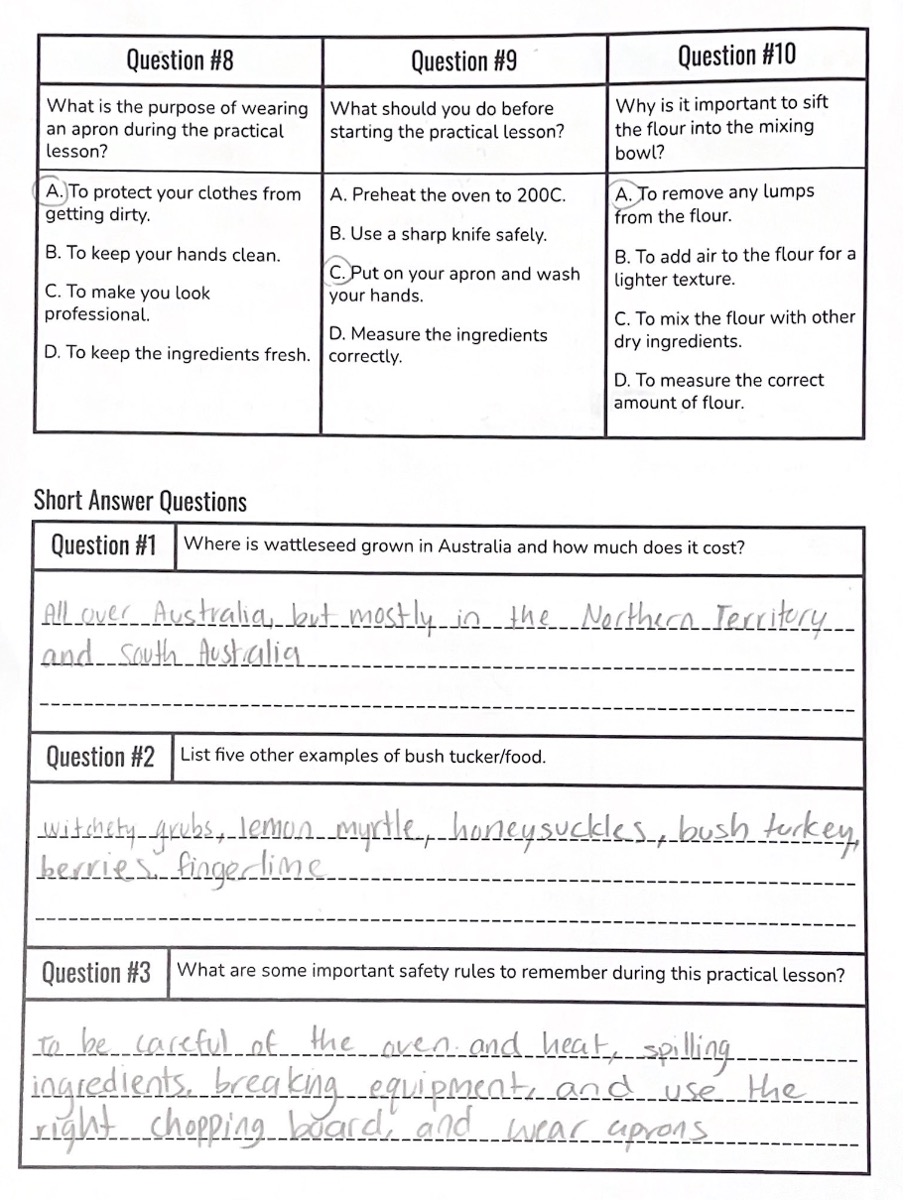 Question #8
Question #9
Question #10
What is the purpose of wearing
an apron during the practical
lesson?
What should you do before
starting the practical lesson?
Why is it important to sift
the flour into the mixing
bowl?
A. To protect your clothes from
getting dirty.
B. To keep your hands clean.
C. To make you look
professional.
D. To keep the ingredients fresh.
A. Preheat the oven to 200C.
B. Use a sharp knife safely.
C. Put on your apron and wash
your hands.
D. Measure the ingredients
correctly.
A. To remove any lumps
from the flour.
B. To add air to the flour for a
lighter texture.
C. To mix the flour with other
dry ingredients.
D. To measure the correct
amount of flour.
Short Answer Questions
Question #1
Where is wattleseed grown in Australia and how much does it cost?
All over Australia, but mostly in the Northern Territory
and South Australia
Question #2
List five other examples of bush tucker/food.
witchety grubs, lemon myrtle, honeysuckles, bush turkey,
berries, fingerlime
Question #3
What are some important safety rules to remember during this practical lesson?
to be careful of the oven and heat, spilling
ingredients, breaking equipment, and use the
right chopping board, and wear aprons